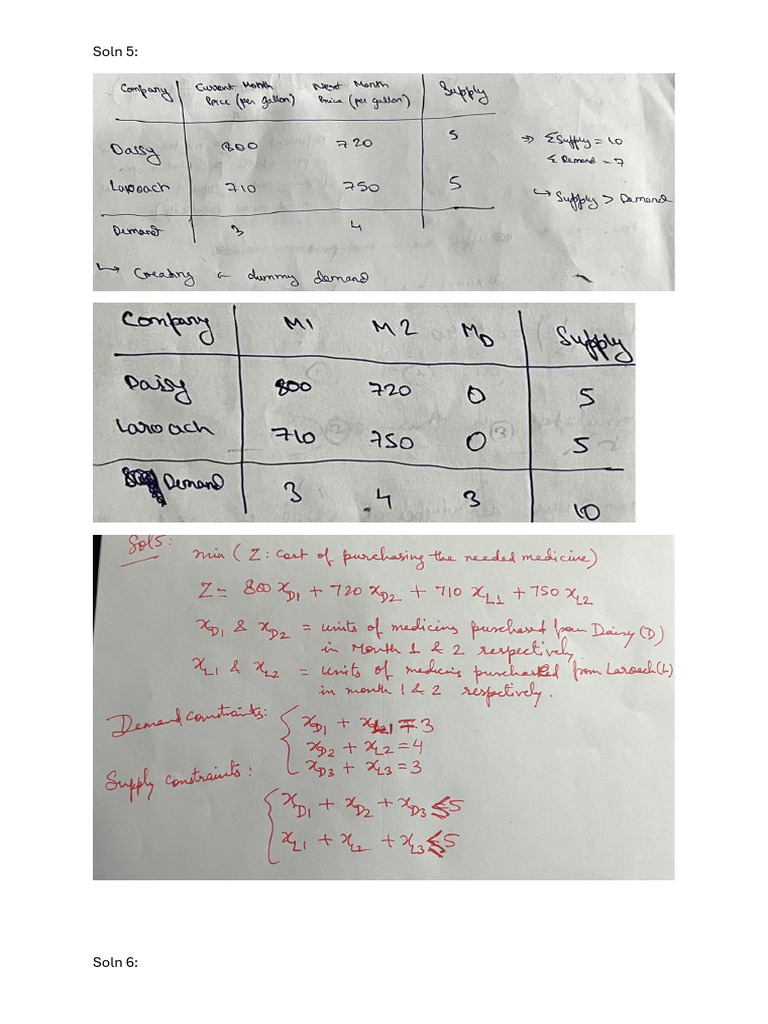 Soln 5:
Company Current Month Next Month Supply
Price (per gallon) Price (per gallon)
Daisy 800 720 5
Laroach 710 750 5
Demand 3 4
⇒ ΣSupply = 10
Σ Demand = 7
↳ Supply > Demand
↳ Creating a dummy demand
Company M1 M2 M_D Supply
Daisy 800 720 0 5
Laroach 710 750 0 5
Demand 3 4 3 10
Sol5:
min ( Z : cost of purchasing the needed medicine)
Z = 800 x_D1 + 720 x_D2 + 710 x_L1 + 750 x_L2
x_D1 & x_D2 = units of medicins purchased from Dairy (D)
in Month 1 & 2 respectively
x_L1 & x_L2 = units of medicins purchased from Laroach (L)
in month 1 & 2 respectively.
Demand constraints: x_D1 + x_L1 = 3
x_D2 + x_L2 = 4
x_D3 + x_L3 = 3
Supply constraints:
x_D1 + x_D2 + x_D3 ≤ 5
x_L1 + x_L2 + x_L3 ≤ 5
Soln 6: